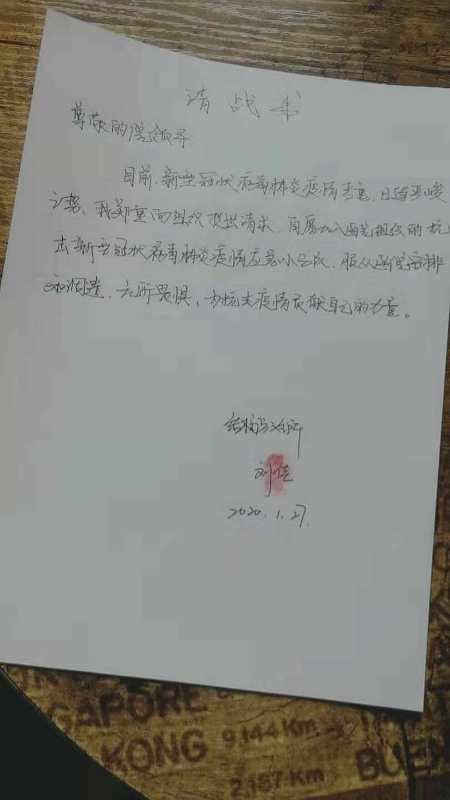 请战书
尊敬的医院领导
目前,新型冠状病毒肺炎疫情严重,日益严峻
之势,我郑重向组织提出请求,自愿加入医院组织的抗
击新型冠状病毒肺炎疫情应急小分队,服从医院安排
和调遣,无所畏惧,为抗击疫情贡献自己的力量。
刘佳
2020.1.27.
GAPORE
KONG
9.144 Km
2.187 Km
BUE